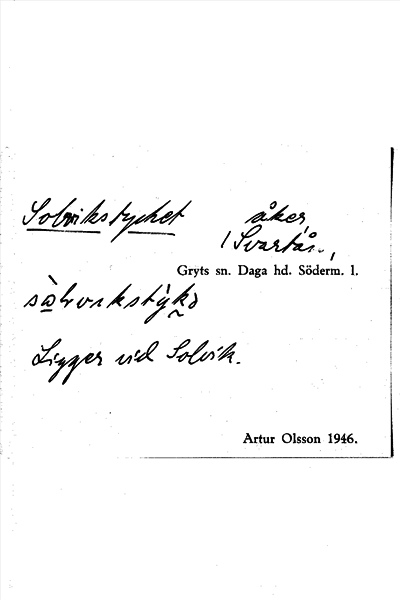 Solvikstycket åker,
/ Svartån.,
Gryts sn. Daga hd. Söderm. l.
Ligger vid Solvik.
Artur Olsson 1946.